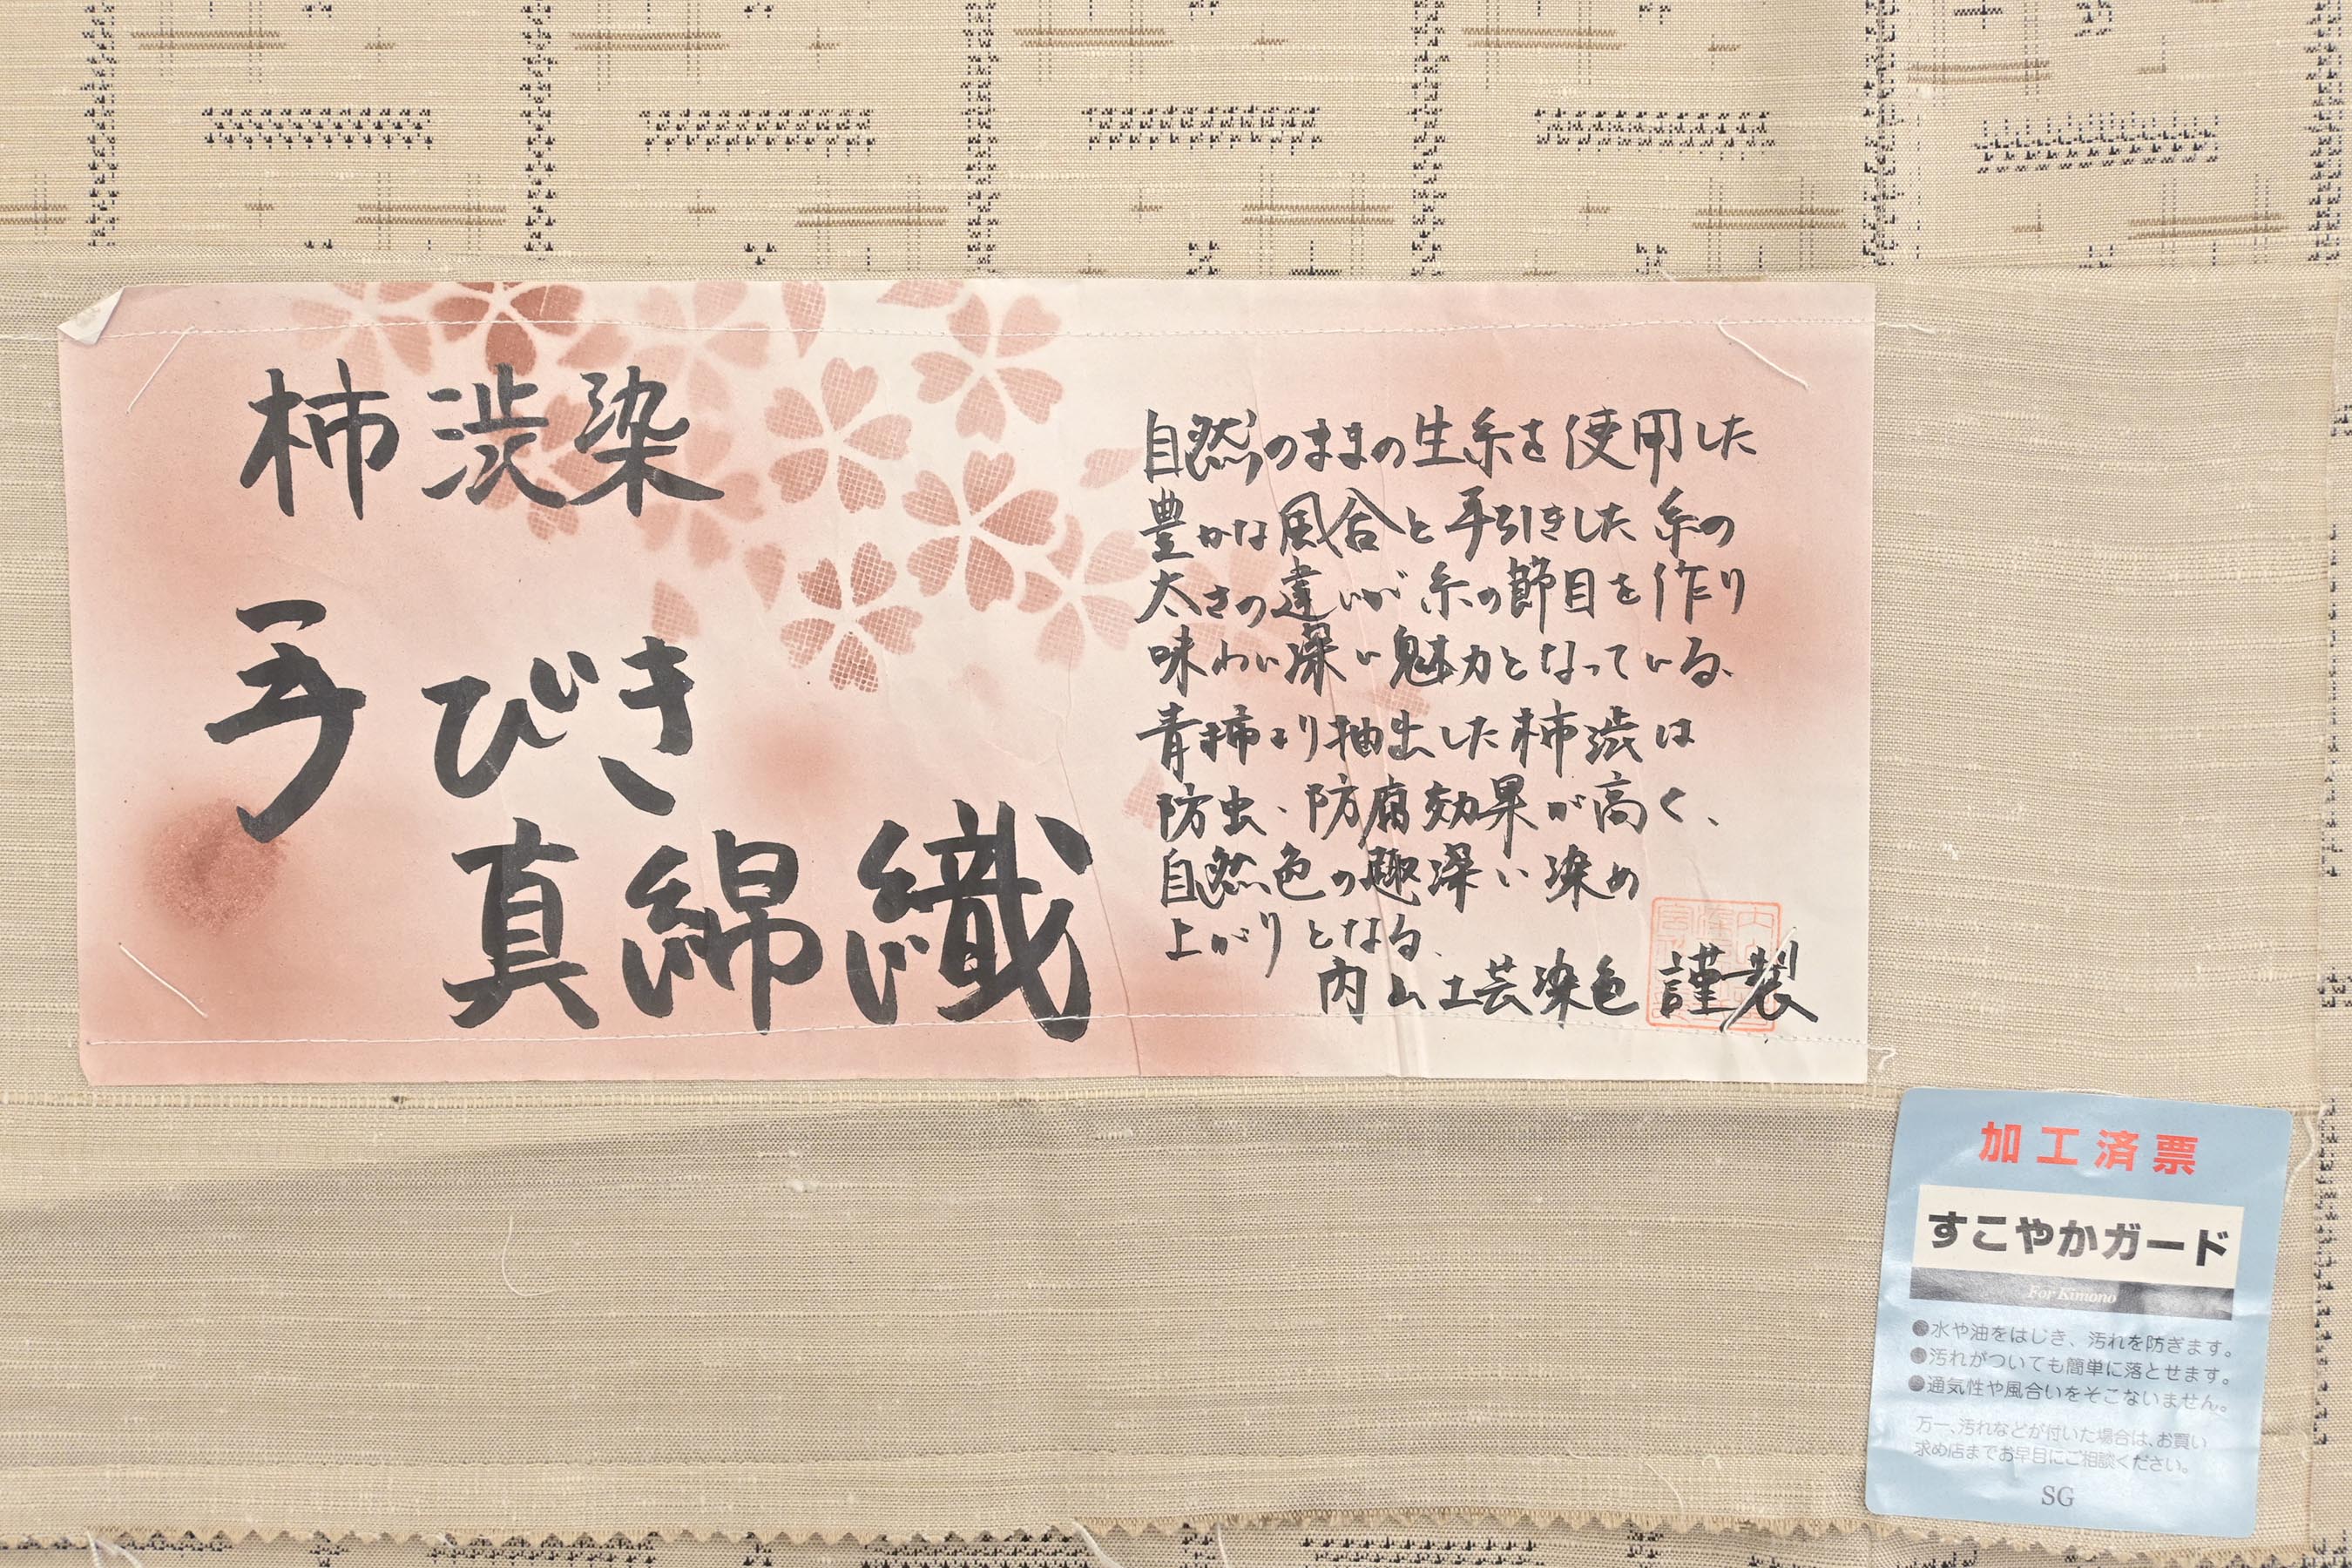 柿渋染
手びき
真綿織
自然のままの生糸を使用した
豊かな風合と手引きした糸の
太さの違いが糸の節目を作り
味わい深い魅力となっている。
青柿より抽出した柿渋は
防虫・防腐効果が高く、
自然色の趣深い染め
上がりとなる。
内山工芸染色 謹製
加工済票
すこやかガード
For Kimono
●水や油をはじき、汚れを防ぎます。
●汚れがついても簡単に落とせます。
●通気性や風合いをそこないません。
万一、汚れなどが付いた場合は、お買い
求め店までお早目にご相談ください。
SG